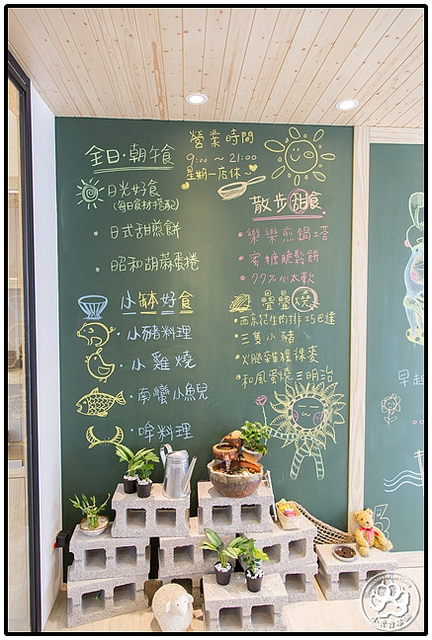 營業時間
9:00 ~ 21:00
星期一店休~
全日·朝午食
日光好食
(每日食材搭配)
· 日式甜煎餅
· 昭和胡蔴蛋捲
小缽好食
· 小豬料理
· 小雞燒
· 南蠻小魚兒
· 哞料理
散步甜食
樂樂煎鍋塔
蜜糖脆鬆餅
QQ心太軟
疊疊燒
西京花生肉排巧巴達
三隻小豬
火腿雞裸裸菜
和風蛋燒三明治
早起